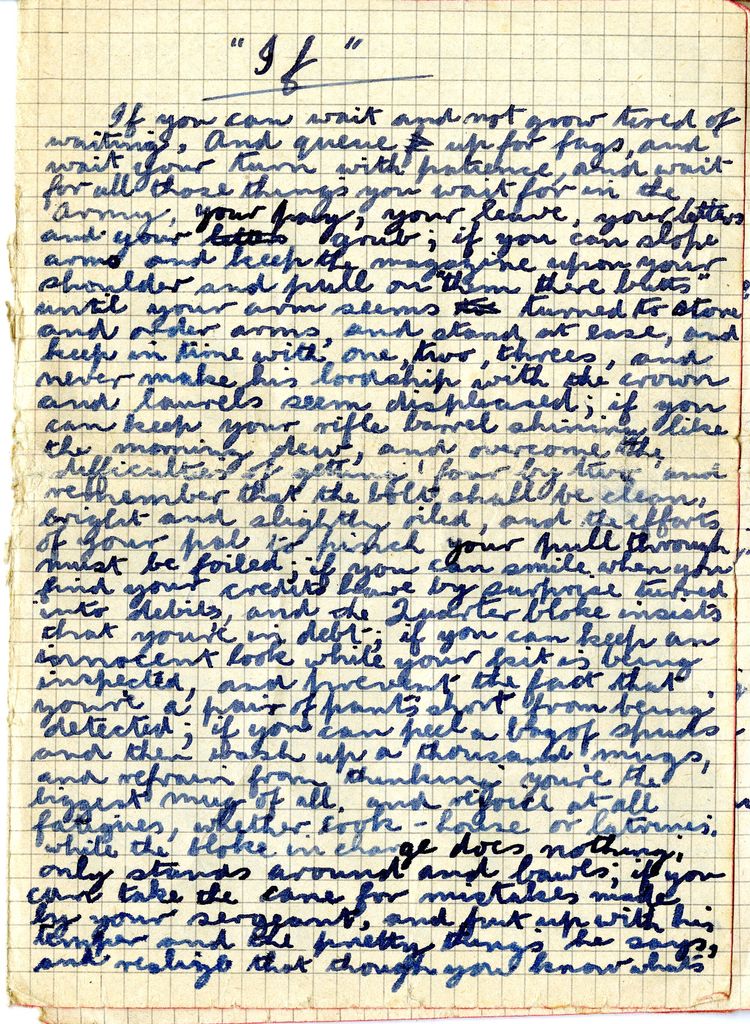 "If"
If you can wait and not grow tired of
waiting, And queue up for fags, and
wait your turn with patience, and wait
for all those things you wait for in the
Army, your pay, your leave, your letters
and your letters grub; if you can slope
arms and keep the magazine upon your
shoulder and pull on "them there butts"
until your arm seems turned to stone
and order arms, and stand at ease, and
keep in time with one, two, threes, and
never make his lordship with the crown
and laurels seem displeased; if you
can keep your rifle barrel shining like
the morning dew, and overcome the
difficulties of getting 'four by two' and
remember that the bolt shall be clean,
bright and slightly oiled, and the efforts
of your pal to pinch your pull through,
must be foiled; if you can smile when you
find your credits have by surprise turned
into debits, and the Quarter bloke insists
that you're in debt; if you can keep an
innocent look while your kit is being
inspected, and prevent the fact that
you're a pair of pants short from being
detected; if you can peel a bag of spuds
and then wash up a thousand mugs,
and refrain from thinking you're the
biggest mug of all, and rejoice at all
fatigues, whether cook-house or latrines,
while the bloke in charge does nothing,
only stands around and bawls; if you
can take the cane for mistakes made
by your sergeant, and put up with his
temper and the pretty things he says,
and realize that though you know what's